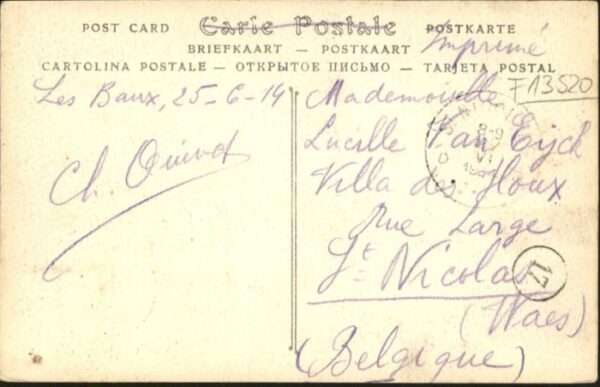 POST CARD Carte Postale POSTKARTE
BRIEFKAART — POSTKAART
Imprimé
CARTOLINA POSTALE — ОТКРЫТОЕ ПИСЬМО — TARJETA POSTAL
F13520
Les Baux, 25-6-14
Ch.
Mademoiselle
Lucille Van Eijck
Villa des Houx
Rue Large
St Nicolas
(Waes)
(Belgique)
17